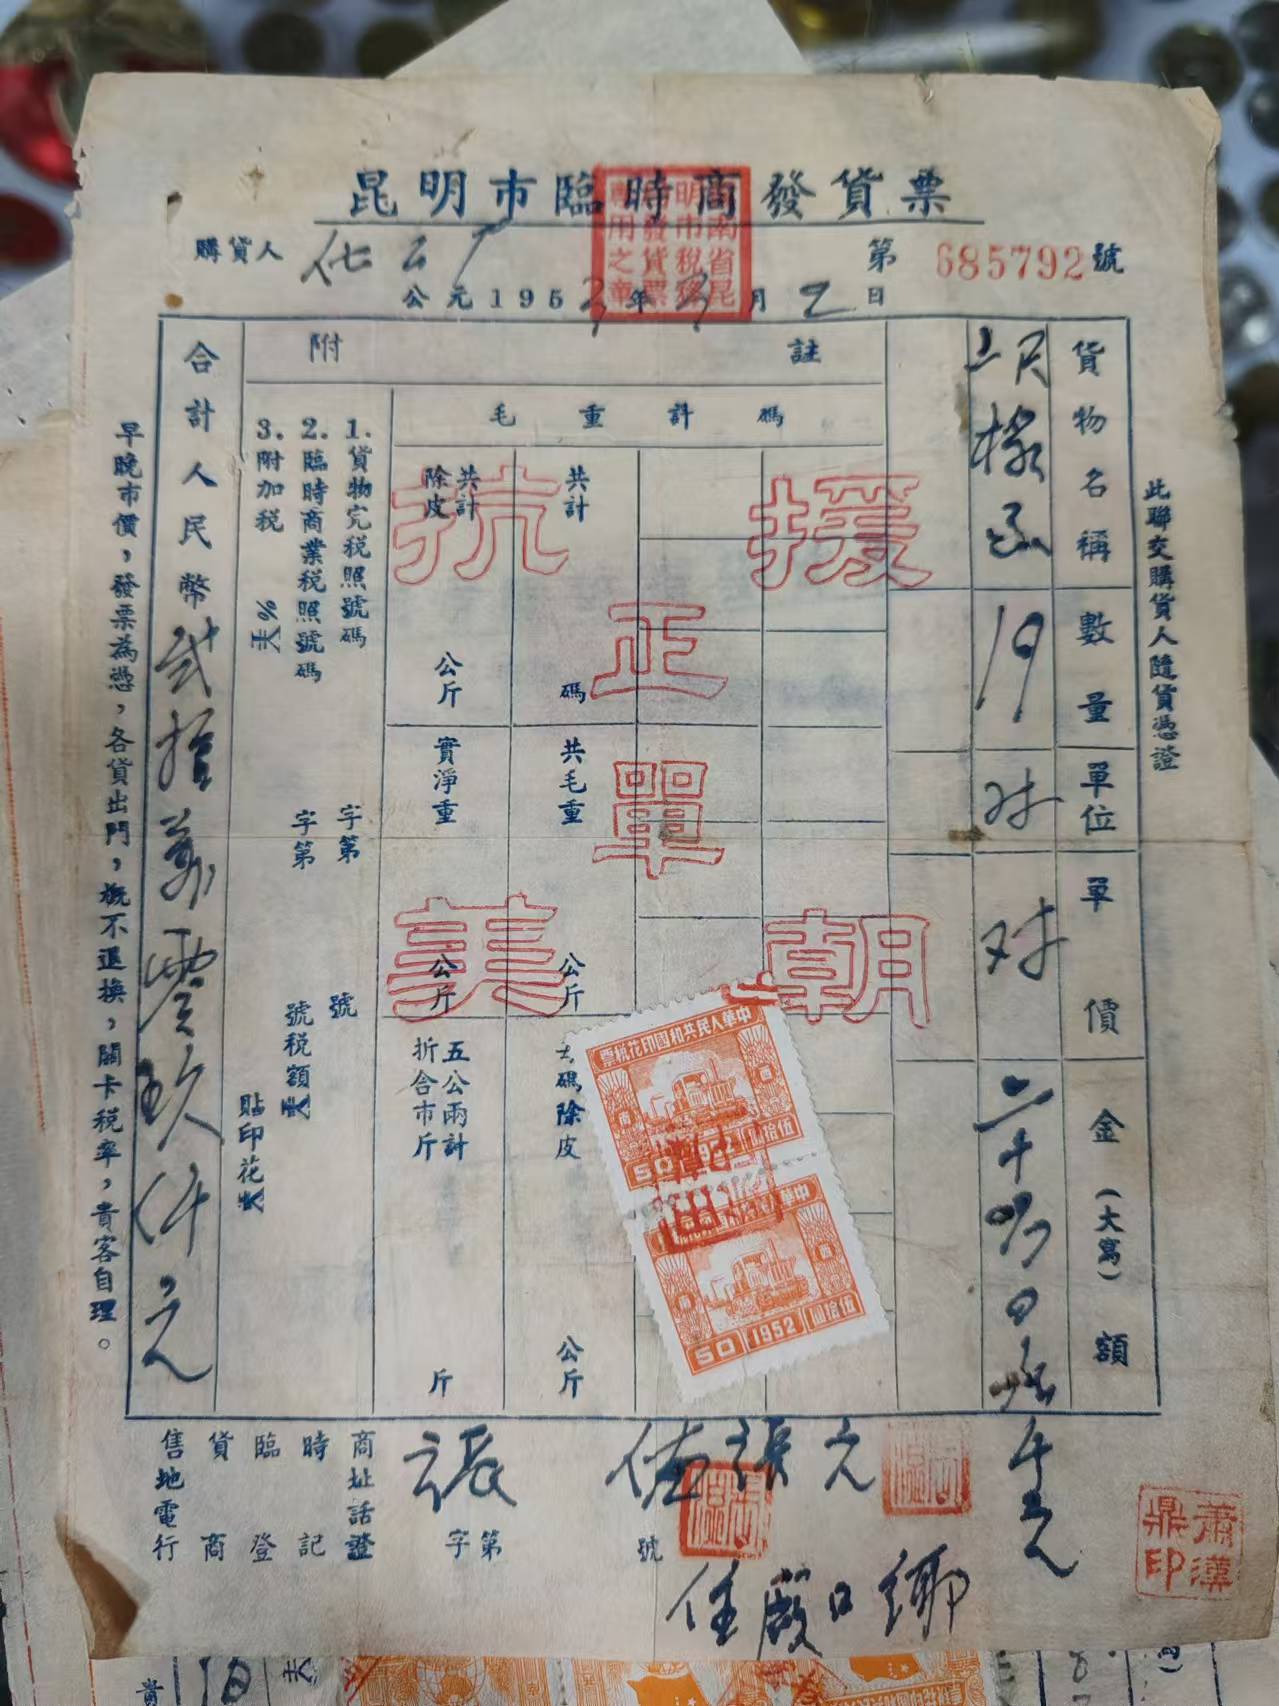 昆明市臨時商發貨票
購貨人 化工厂
第 685792 號
公元195 年 月 2 日
此聯交購貨人隨貨憑證
貨物名稱
數量
單位
單價
金(大寫)額
19
对
对
附註
毛重計碼
共計 碼
共計除皮 公斤
共毛重 公斤
實淨重 公斤
去碼除皮 公斤
五公兩計折合市斤 斤
1.貨物完稅照號碼 字第 號
2.臨時商業稅照號碼 字第 號稅額
3.附加稅 % 貼印花
援朝
正單
抗美
合計人民幣 貳拾萬零玖仟元
早晚市價,發票為憑,各貨出門,概不退換,關卡稅率,貴客自理。
中華人民共和國印花稅票
伍拾圓
1952
50
中華人民共和國印花稅票
伍拾圓
1952
50
售貨臨時商
地址
電話
行商登記證 字第 號
張
佐
住 殿口鄉
蕭漢鼎印